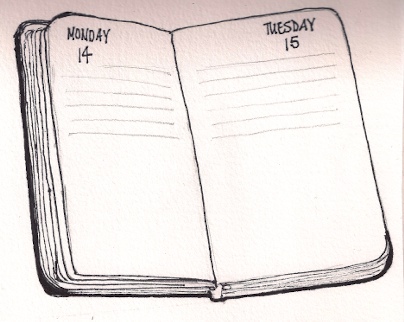 MONDAY
14
TUESDAY
15